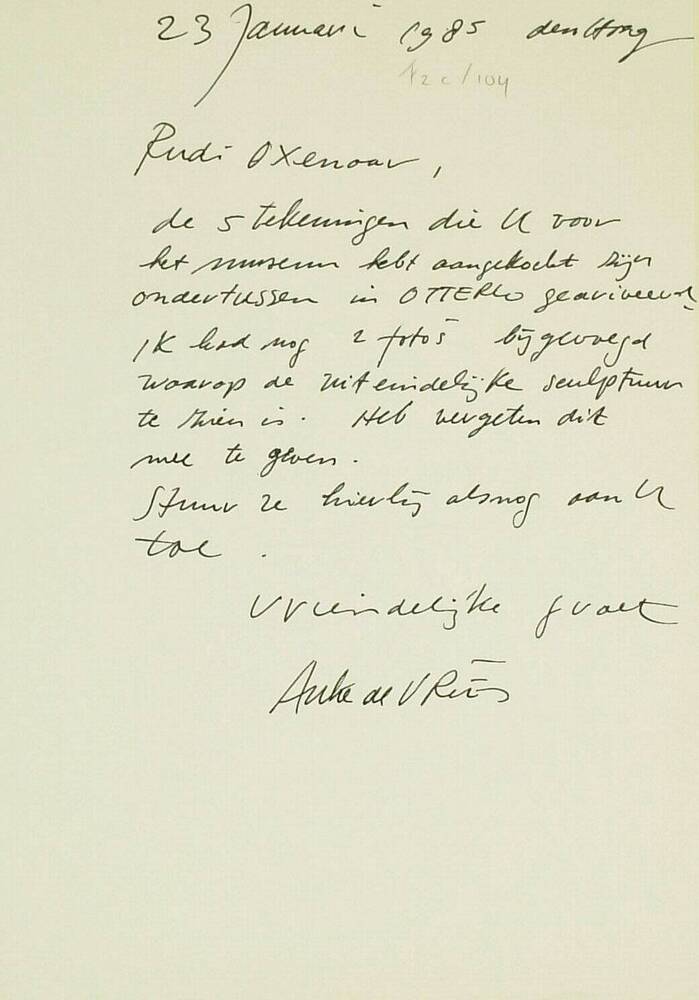 23 Januari 1985 den Haag
Rudi Oxenaar,
de 5 tekeningen die U voor
het museum hebt aangekocht zijn
ondertussen in OTTERLO gearriveerd.
IK had nog 2 foto's bijgevoegd
waarop de uiteindelijke sculptuur
te zien is. Heb vergeten dit
mee te geven.
Stuur ze hierbij alsnog aan U
toe.
Vriendelijke groet
Auke de VRies